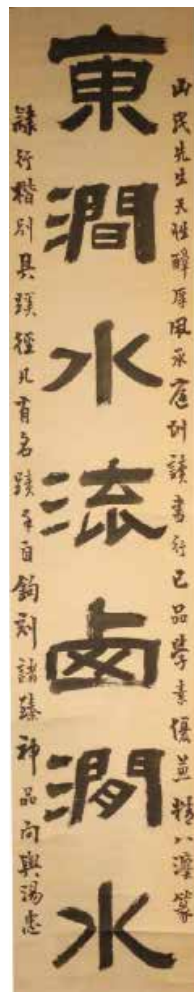 山民先生天性醇厚風承庭訓讀書行己品學素優並精八灋篆
東澗水流卥澗水
隸行楷別具蹊徑凡有名蹟手自鉤刻諸臻神品向與湯忠